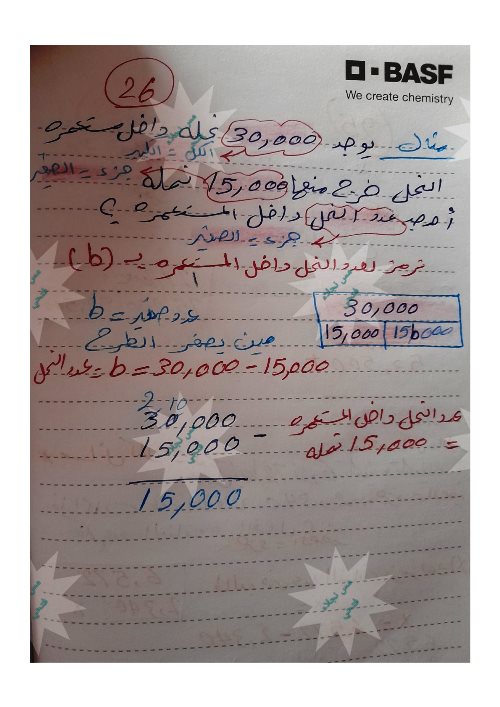 BASF
We create chemistry
26
مثال يوجد 30,000 نحلة داخل مستعمره
الكل = الكبير
النحل خرج منها 15,000 نحلة جزء = الصغير
أوجد عدد النحل داخل المستعمرة ؟
جزء = الصغير
نرمز لعدد النحل داخل المستعمره بـ (b)
30,000
15,000 15b000
عدد صغير = b
مين يصغر الطرح
عدد النحل = b = 30,000 - 15,000
2 10
30,000
15,000 -
15,000
عدد النحل داخل المستعمره
= 15,000 نحله